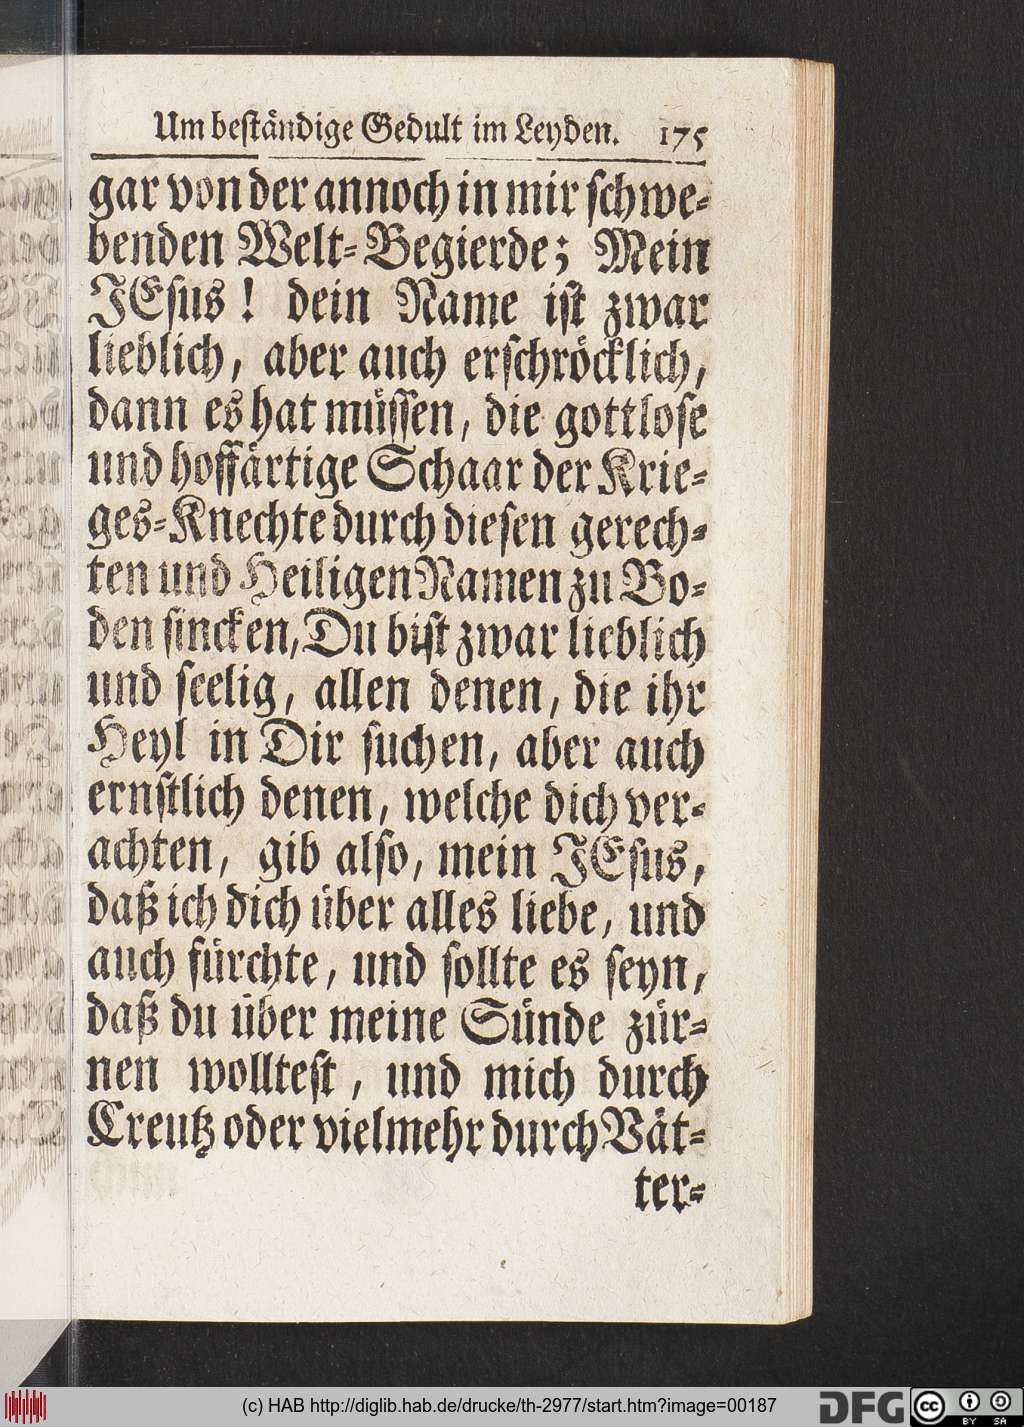 Um beständige Gedult im Leyden. 175
gar von der annoch in mir schwe-
benden Welt-Begierde; Mein
JEsus! dein Name ist zwar
lieblich, aber auch erschröcklich,
dann es hat müssen, die gottlose
und hoffärtige Schaar der Krie-
ges-Knechte durch diesen gerech-
ten und Heiligen Namen zu Bo-
den sincken, Du bist zwar lieblich
und seelig, allen denen, die ihr
Heyl in Dir suchen, aber auch
ernstlich denen, welche dich ver-
achten, gib also, mein JEsus,
daß ich dich über alles liebe, und
auch fürchte, und sollte es seyn,
daß du über meine Sünde zür-
nen wolltest, und mich durch
Creutz oder vielmehr durch Vät-
ter-
(c) HAB http://diglib.hab.de/drucke/th-2977/start.htm?image=00187
DFG
cc BY SA